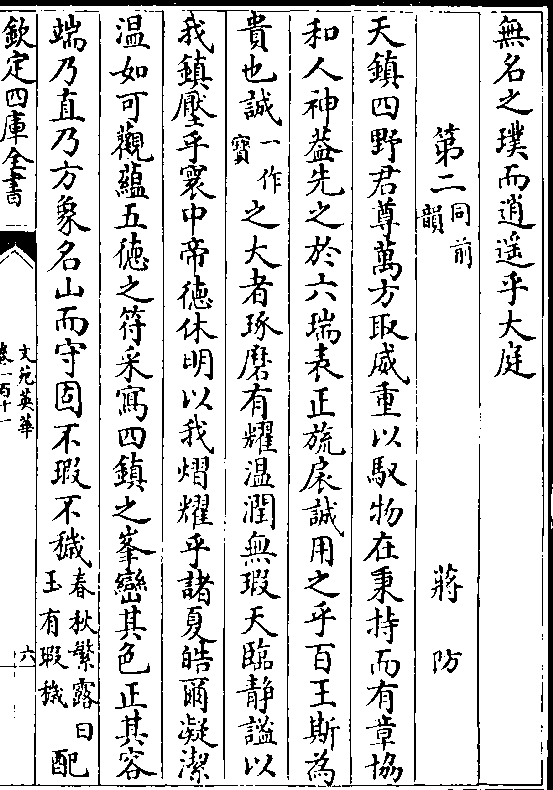 無名之璞而逍遥乎大庭
第二同前韻 蔣防
天鎮四野君尊萬方取威重以馭物在秉持而有章協
和人神葢先之於六瑞表正旒扆誠用之乎百王斯為
貴也誠一作寶之大者琢磨有耀温潤無瑕天臨静謐以
我鎮壓乎寰中帝徳休明以我熠耀乎諸夏皓爾凝潔
温如可觀藴五徳之符采寫四鎮之峯巒其色正其容
端乃直乃方象名山而守固不瑕不穢春秋繁露曰玉有瑕穢配
欽定四庫全書
文苑英華
卷一百十一
六